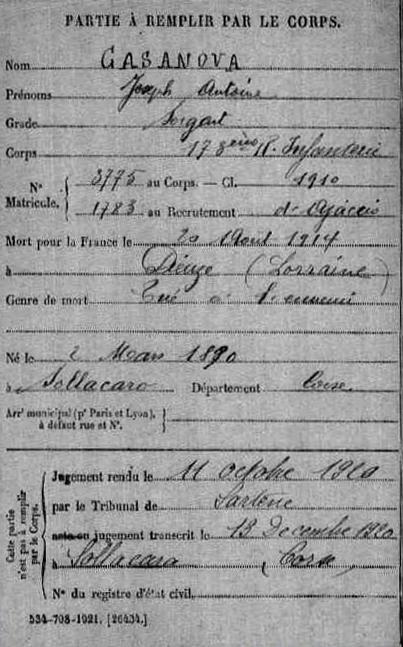 PARTIE À REMPLIR PAR LE CORPS.
Nom CASANOVA
Prénoms Joseph Antoine
Grade Sergent
Corps 173ème R. Infanterie
N° Matricule. 3775 au Corps. — Cl. 1910
1783 au Recrutement d'Ajaccio
Mort pour la France le 20 Aout 1914
à Dieuze (Lorraine)
Genre de mort Tué à l'ennemi
Né le 2 Mars 1890
à Sollacaro Département Corse
Arr' municipal (p' Paris et Lyon),
à défaut rue et N°.
Cette partie n'est pas à remplir par le Corps.
Jugement rendu le 11 octobre 1920
par le Tribunal de Sartène
acte ou jugement transcrit le 13 Decembre 1920
à Sollacaro (Corse)
N° du registre d'état civil
534-708-1921. [26434.]